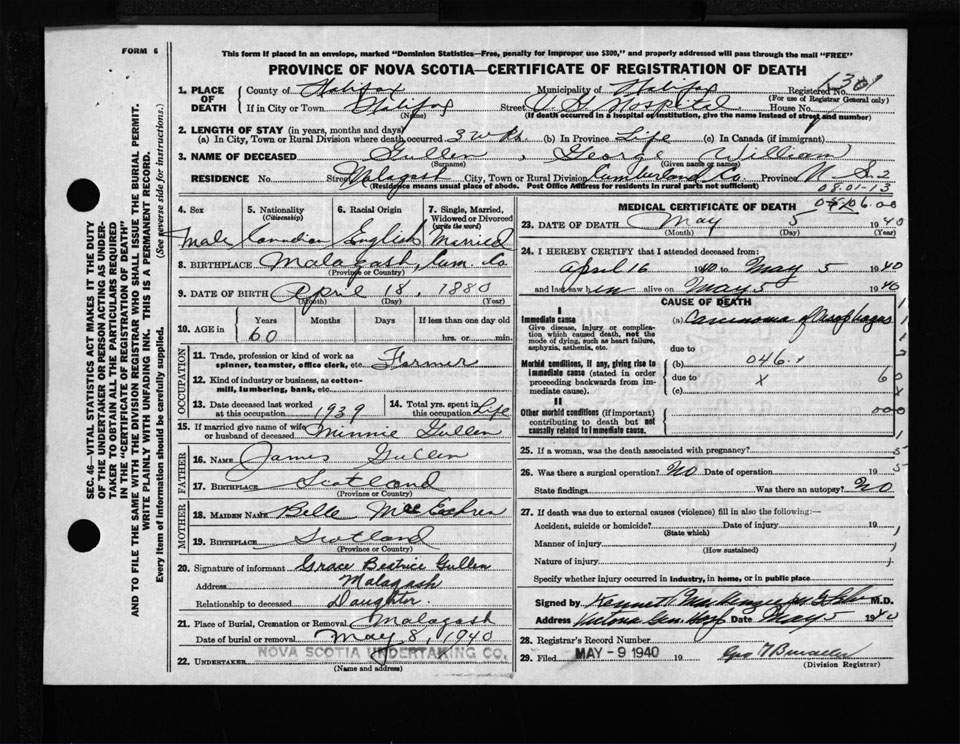 FORM 6
This form if placed in an envelope, marked "Dominion Statistics—Free, penalty for improper use $300," and properly addressed will pass through the mail "FREE"
PROVINCE OF NOVA SCOTIA—CERTIFICATE OF REGISTRATION OF DEATH
1. PLACE OF DEATH County of Halifax Municipality of Halifax Registered No.
(For use of Registrar General only)
If in City or Town Halifax Street V. G. Hospital House No.
(Name) (If death occurred in a hospital or institution, give the name instead of street and number)
2. LENGTH OF STAY (in years, months and days)
(a) In City, Town or Rural Division where death occurred 3 wks. (b) In Province Life (c) In Canada (if immigrant)
3. NAME OF DECEASED Gullen, George William
(Surname) (Given name or names)
RESIDENCE No. Street Malagash City, Town or Rural Division Cumberland Co. Province N-S-2
(Residence means usual place of abode. Post Office Address for residents in rural parts not sufficient)
08.01-13
4. Sex 5. Nationality (Citizenship) 6. Racial Origin 7. Single, Married, Widowed or Divorced (write the word)
Male Canadian English Married
8. BIRTHPLACE Malagash, Cum. Co
(Province or Country)
9. DATE OF BIRTH April 18, 1880
(Month) (Day) (Year)
10. AGE in Years Months Days If less than one day old
60 hrs. or min.
OCCUPATION
11. Trade, profession or kind of work as spinner, teamster, office clerk, etc. Farmer
12. Kind of industry or business, as cotton-mill, lumbering, bank, etc.
13. Date deceased last worked at this occupation 1939 14. Total yrs. spent in this occupation Life
15. If married give name of wife or husband of deceased Minnie Gullen
FATHER
16. Name James Gullen
17. Birthplace Scotland
(Province or Country)
MOTHER
18. Maiden Name Belle MacEachren
19. Birthplace Scotland
(Province or Country)
20. Signature of informant Grace Beatrice Gullen
Address Malagash
Relationship to deceased Daughter.
21. Place of Burial, Cremation or Removal Malagash
Date of burial or removal May 8, 1940
22. Undertaker NOVA SCOTIA UNDERTAKING CO.
(Name and address)
MEDICAL CERTIFICATE OF DEATH
23. DATE OF DEATH May 5 1940
(Month) (Day) (Year)
24. I HEREBY CERTIFY that I attended deceased from:
April 16 1940 to May 5 1940
and last saw him alive on May 5 1940
CAUSE OF DEATH
I
Immediate cause (a) Carcinoma of Oesophagus
Give disease, injury or complication which caused death, not the mode of dying, such as heart failure, asphyxia, asthenia, etc.
due to
Morbid conditions, if any, giving rise to immediate cause (stated in order proceeding backwards from immediate cause). (b) 046.1
due to X
(c)
II
Other morbid conditions (if important) contributing to death but not causally related to immediate cause.
25. If a woman, was the death associated with pregnancy?
26. Was there a surgical operation? No Date of operation 19
State findings Was there an autopsy? No
27. If death was due to external causes (violence) fill in also the following:—
Accident, suicide or homicide? Date of injury 19
(State which)
Manner of injury
(How sustained)
Nature of injury
Specify whether injury occurred in industry, in home, or in public place
Signed by M.D.
Address Victoria Gen. Hosp Date May 1940
28. Registrar's Record Number
29. Filed MAY - 9 1940 19
(Division Registrar)
SEC. 46—VITAL STATISTICS ACT MAKES IT THE DUTY
OF THE UNDERTAKER OR PERSON ACTING AS UNDER-
TAKER TO OBTAIN ALL THE PARTICULARS REQUIRED
IN THE "CERTIFICATE OF REGISTRATION OF DEATH"
AND TO FILE THE SAME WITH THE DIVISION REGISTRAR WHO SHALL ISSUE THE BURIAL PERMIT.
WRITE PLAINLY WITH UNFADING INK. THIS IS A PERMANENT RECORD.
Every item of information should be carefully supplied. (See reverse side for instructions.)